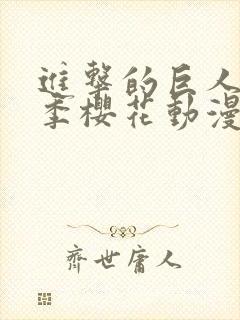 進擊的巨人
季櫻花動漫
齊世庸人